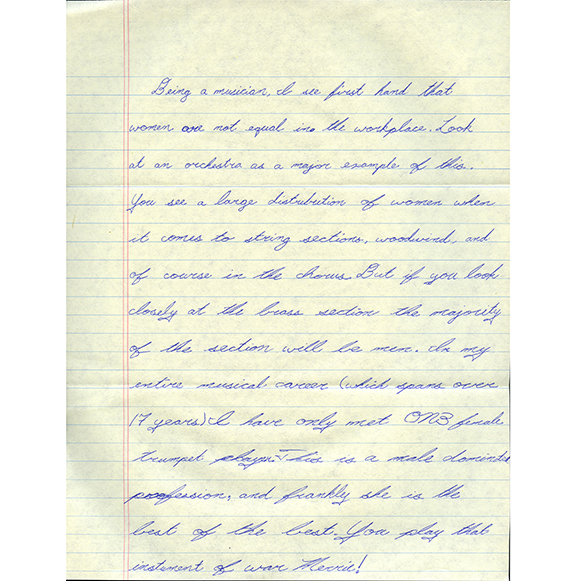 Being a musician, I see first hand that
women are not equal in the workplace. Look
at an orchestra as a major example of this.
You see a large distribution of women when
it comes to string sections, woodwind, and
of course in the chorus. But if you look
closely at the brass section the majority
of the section will be men. In my
entire musical career (which spans over
17 years) I have only met ONE female
trumpet player. This is a male dominated
profession, and frankly she is the
best of the best. You play that
instument of war Merrie!